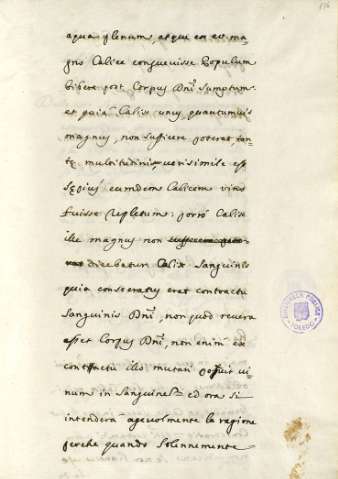 aqua plenum, atque ex eo ma,
gno Calice consuevisse Populum
bibere post Corpus Dnī sumptum.
et quia Calix unus, quantumuis
magnus, non sufficere poterat, tan=
tę multitudinis, uerisimile est
sępius eumdem Calicem vino
fuisse repletum: porro Calix
ille magnus non
dicebatur Calix Sanguinis
quia consecratus erat contractu
Sanguinis Dnī, non quod revera
esset Corpus Dnī, non enim ex
contactu illo mutari posuit vi
num in Sanguinem. ed ora si
intenderà agevolmente la ragione
perche quando solennemente
BIBLIOTECA PUBLICA
TOLEDO